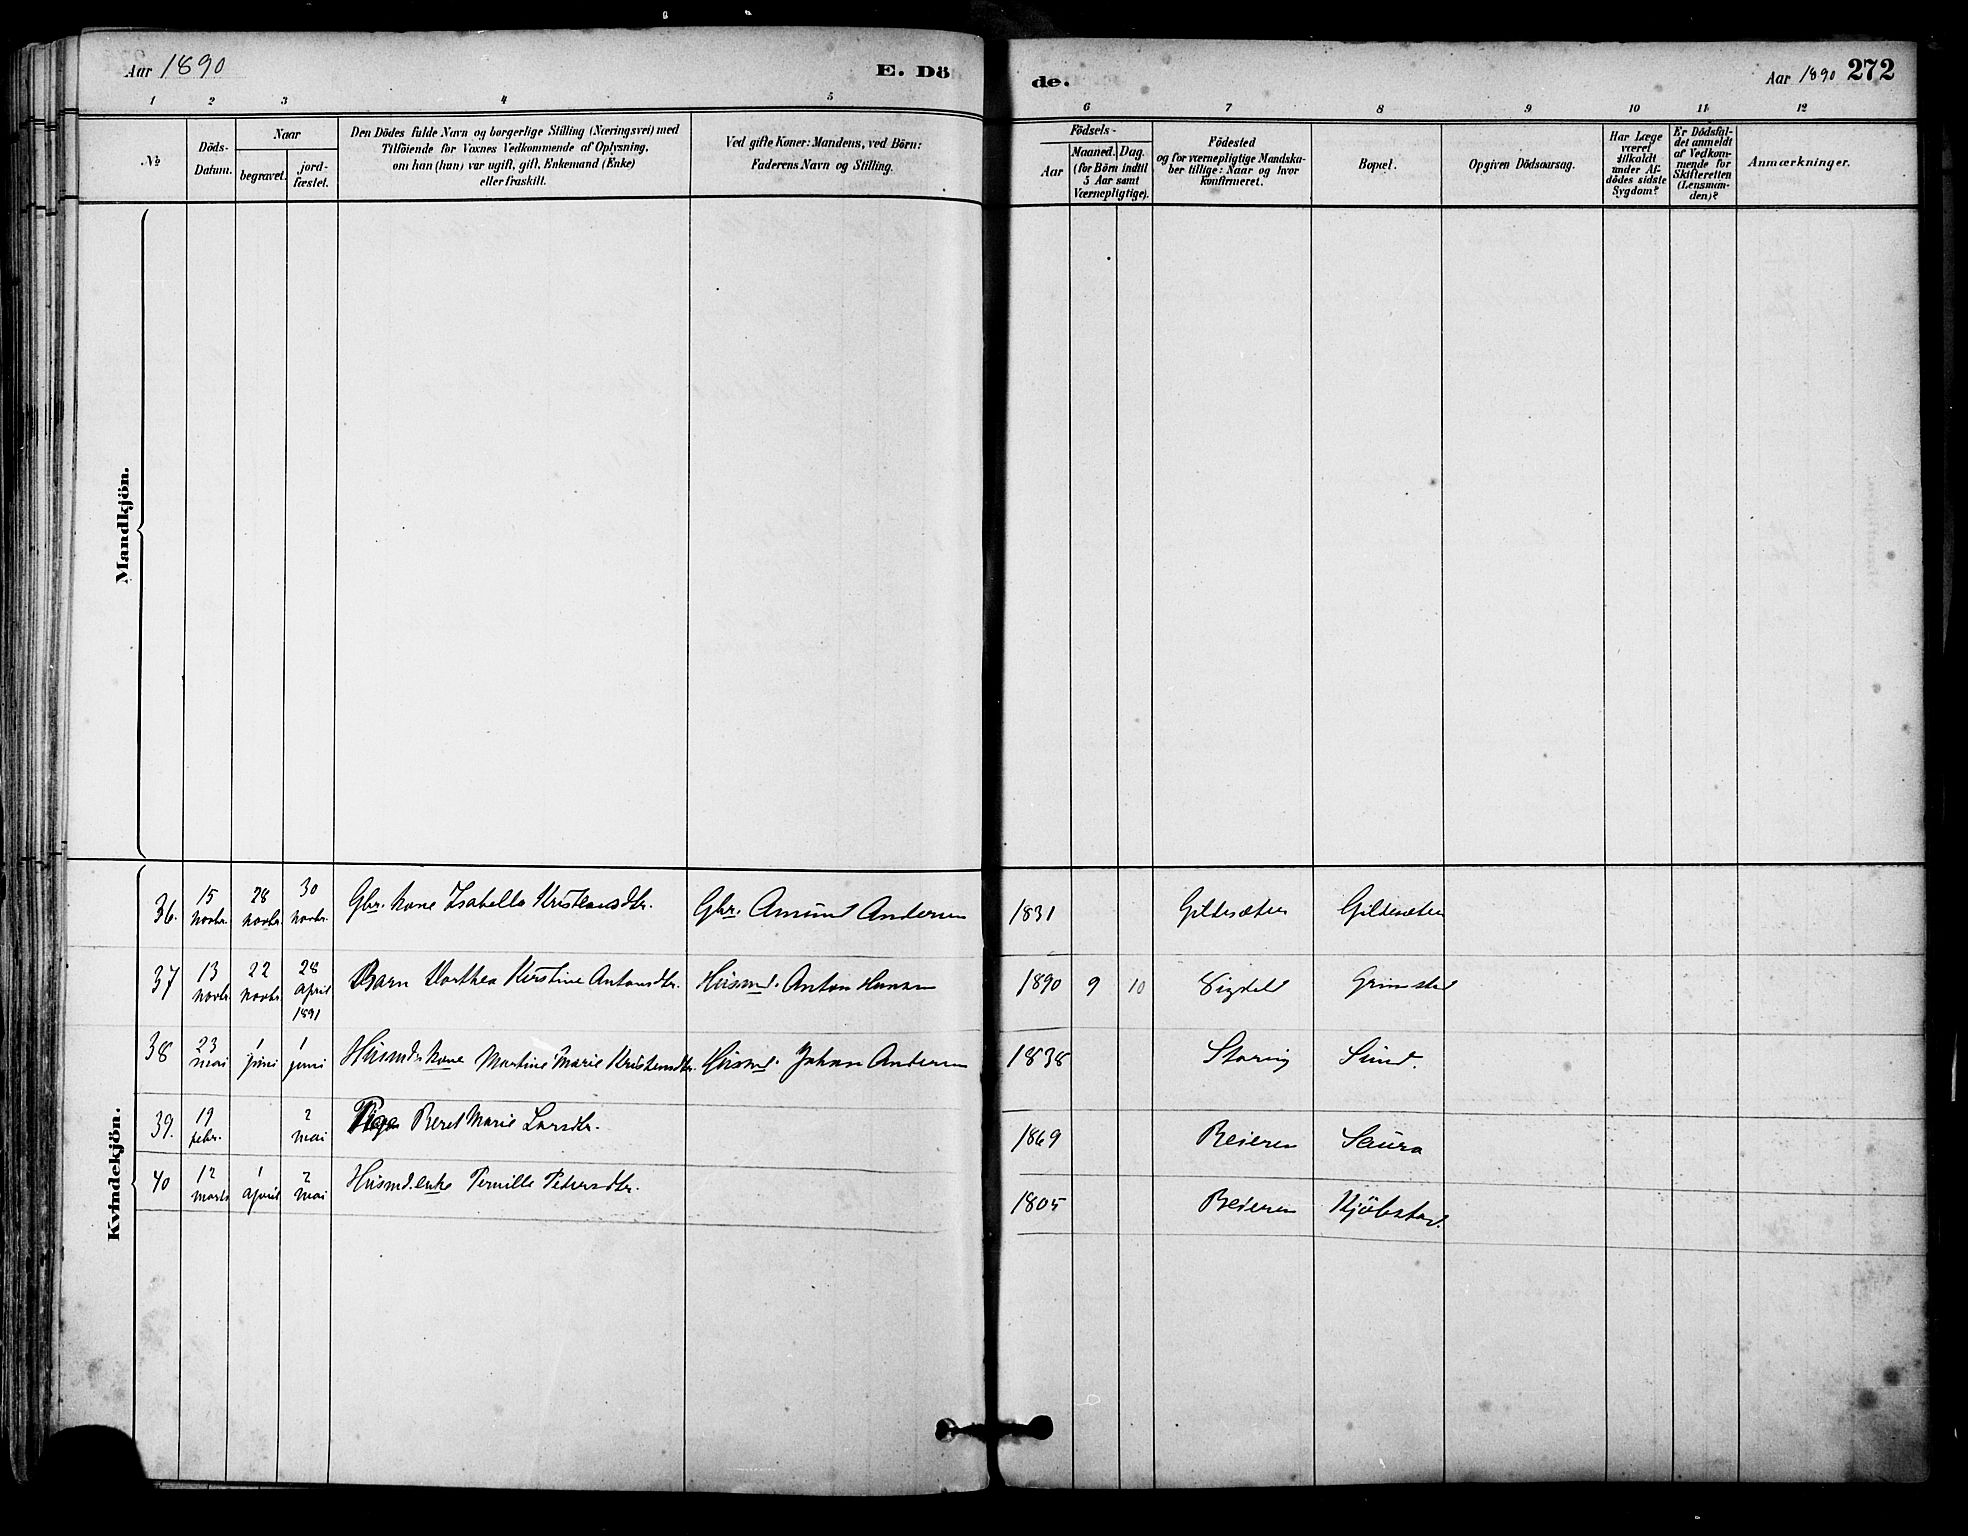 Aar 1890
E. Dö
de.
Aar 1890 272
1 2 3 4 5 6 7 8 9 10 11 12
No
Döds-
Datum.
Naar
begravet.
jord-
fæstet.
Den Dödes fulde Navn og borgerlige Stilling (Næringsvei) med
Tilföiende for Voxnes Vedkommende af Oplysning,
om han (hun) var ugift, gift, Enkemand (Enke)
eller fraskilt.
Ved gifte Koner: Mandens, ved Börn:
Faderens Navn og Stilling.
Födsels-
Aar
Maaned. Dag.
(for Börn indtil
5 Aar samt
Værnepligtige).
Födested
og for værnepligtige Mandska-
ber tillige: Naar og hvor
konfirmeret.
Bopæl.
Opgiven Dödsaarsag.
Har Læge
været
tilkaldt
under Af-
dödes sidste
Sygdom?
Er Dödsfal-
det anmeldt
af Vedkom-
mende for
Skifteretten
(Lensman-
den)?
Anmærkninger.
Mandkjön.
Kvindekjön.
36. 15 novbr. 28 novbr. 30 novbr. Gbr. kone Isabella Kristensdtr. Gbr. Amund Andersen 1831 Gildesæter Gildesæter
37 13 novbr. 22 novbr. 28 april 1891 Barn Dorthea Kirstine Antonsdtr. Husmd. Anton Hansen 1890 9 10 Grimstad
38 23 mai 1 juni 1 juni Husmds kone Martine Marie Kristensdtr. Husmd. Johan Andersen 1838 Sund.
39. 19 febr. 2 mai Pige Beret Marie Larsdtr. 1869 Beieren Saura
40 12 marts 1 april 2 mai Husmd. enke Pernille Petersdtr. 1805 Beieren Kjöbstad.